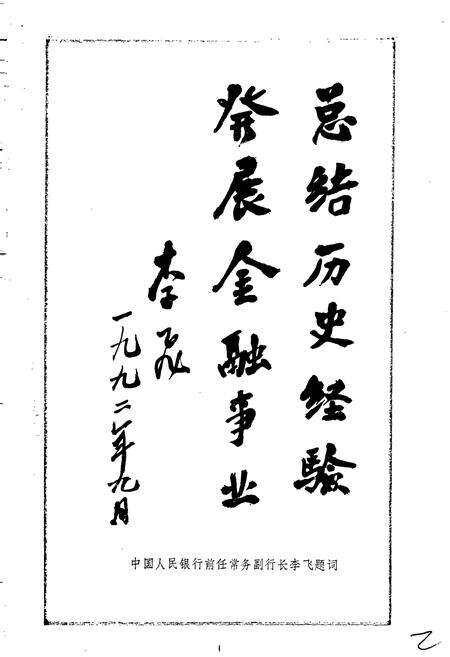 总结历史经验
發展金融事业
李飞
一九九二年九月
中国人民银行前任常务副行长李飞题词
1